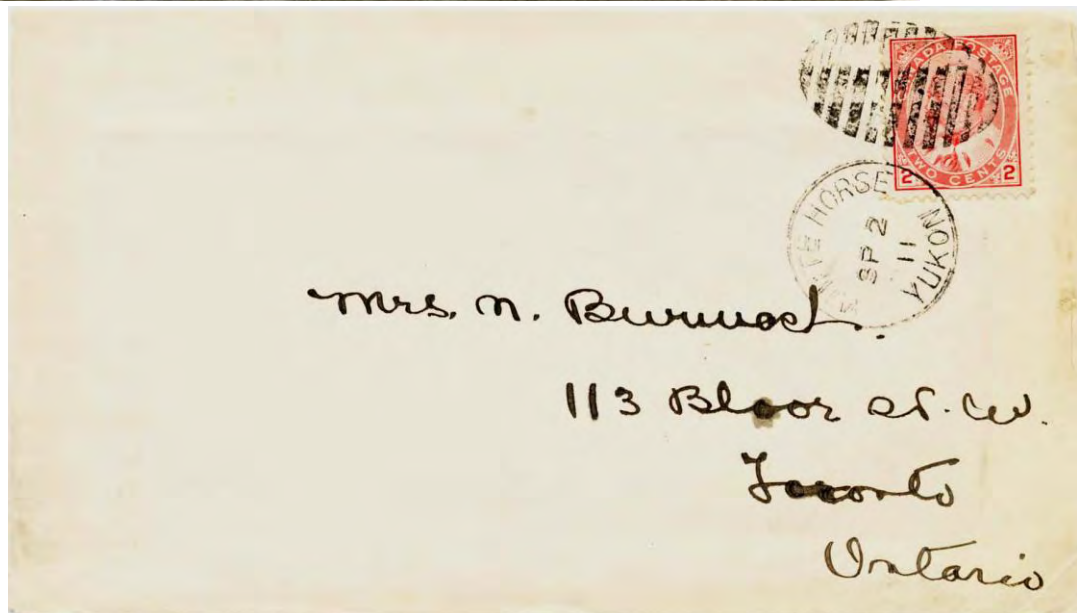 CANADA POSTAGE
2 TWO CENTS 2
WHITE HORSE
SP 2
11
YUKON
Mrs. N.
113 Bloor St. W.
Toronto
Ontario